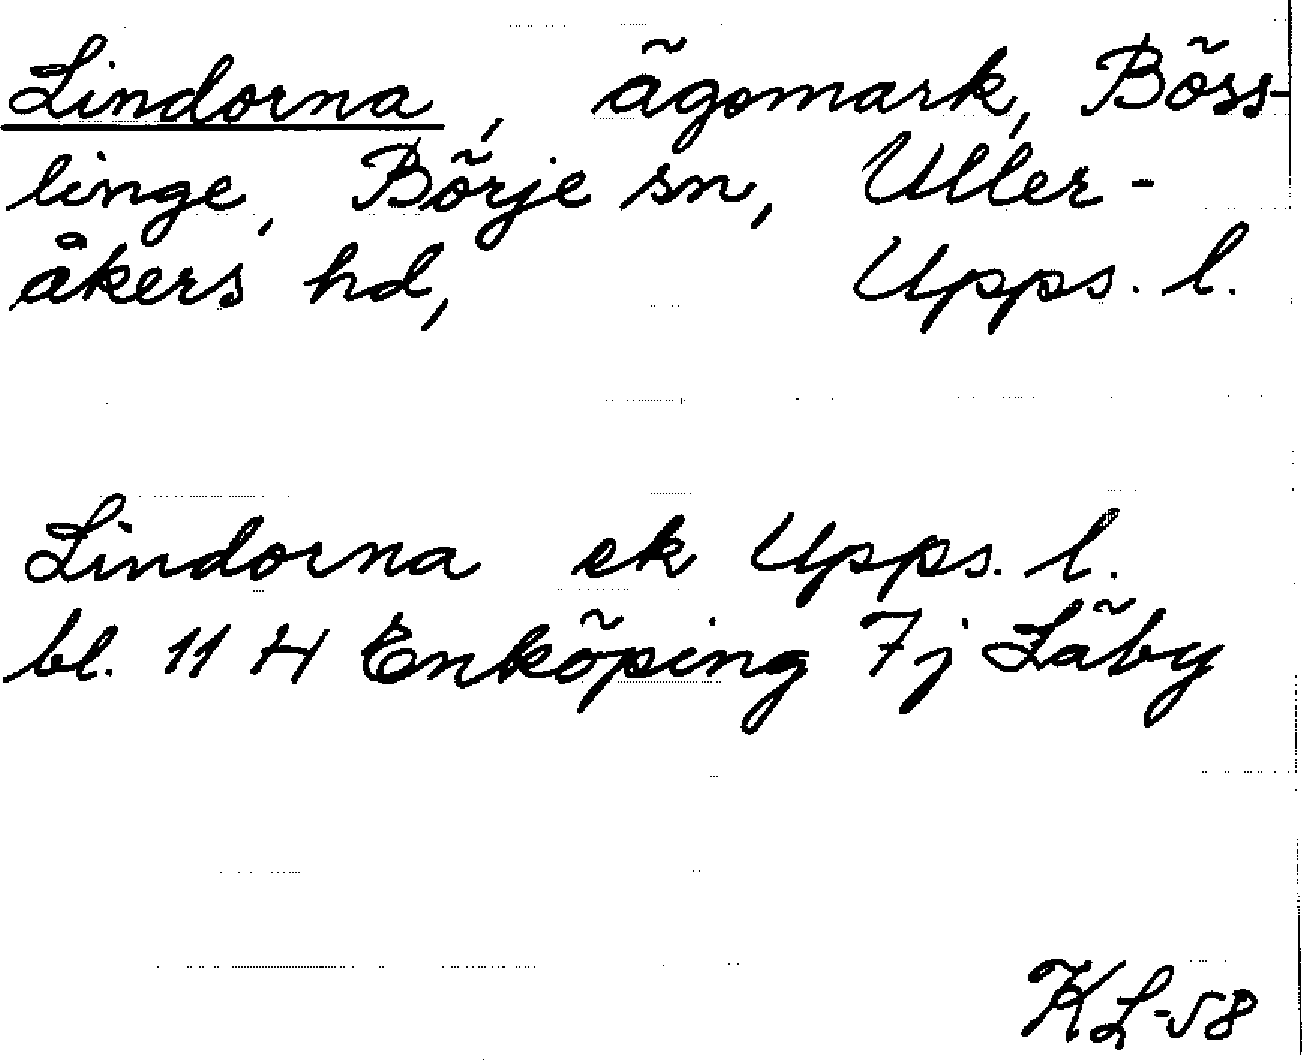 Lindorna, ägomark, Böss-
linge, Börje sn, Uller-
åkers hd, Upps. l.
Lindorna ek Upps. l.
bl. 11 H Enköping 7j Läby
KL-58